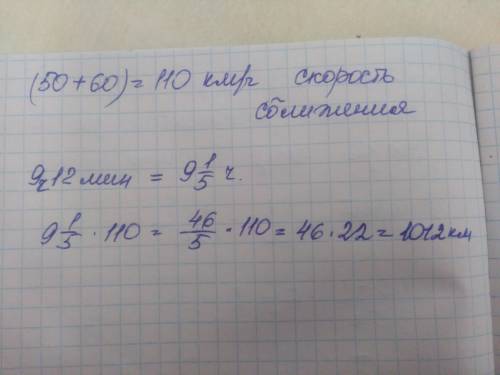 (50+60) = 110 км/ч скорость
сближения
9ч12 мин = 9 1/5 ч.
9 1/5 · 110 = 46/5 · 110 = 46 · 22 = 1012 км